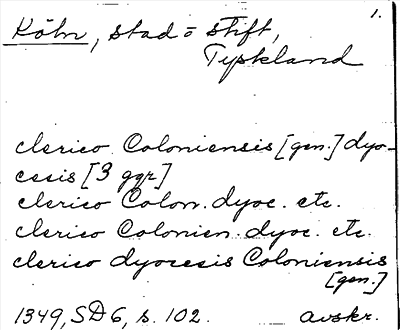 1.
Köln, stad o stift,
Tyskland
clerico Coloniensis [gen.] dyo-
cesis [3 ggr]
clerico Colon. dyoc. etc.
clerico Colonien. dyoc. etc.
clerico dyocesis Coloniensis
[gen.]
1349, SD 6, s. 102. avskr.